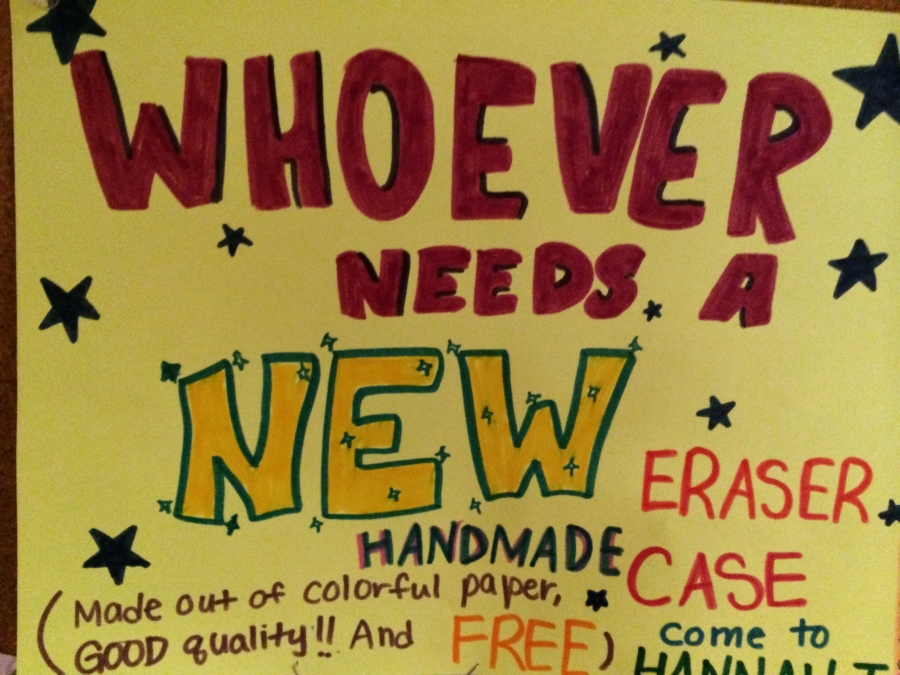 WHOEVER
NEEDS A
NEW
ERASER
HANDMADE CASE
(Made out of colorful paper,
GOOD quality!! And FREE)
come to